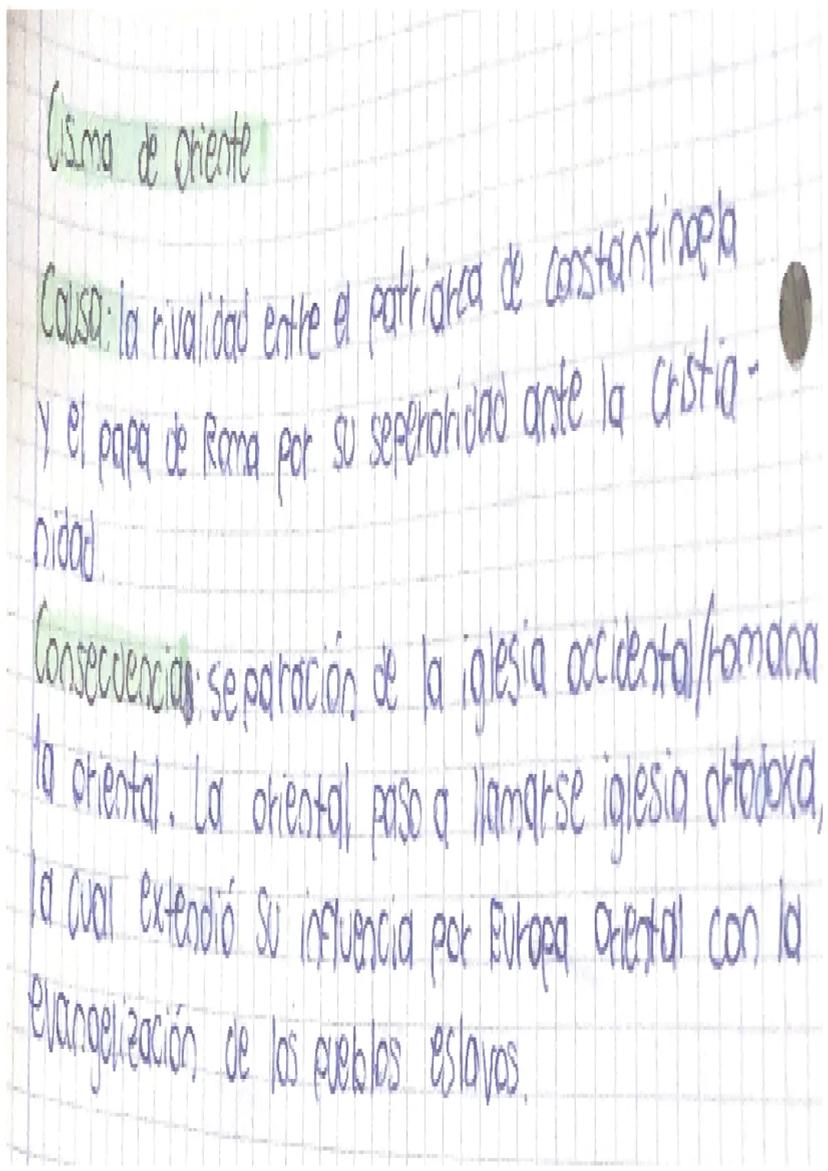 Cisma de oriente
Causa: la rivalidad entre el patriarca de constantinopla
y el papa de Roma por su seperioridad ante la cristia-
nidad.
Consecuencias: separación de la iglesia occidental/romana
la oriental. La oriental paso a llamarse iglesia ortodoxa,
la cual extendió su influencia por Europa Oriental con la
evangelización de los pueblos eslavos.